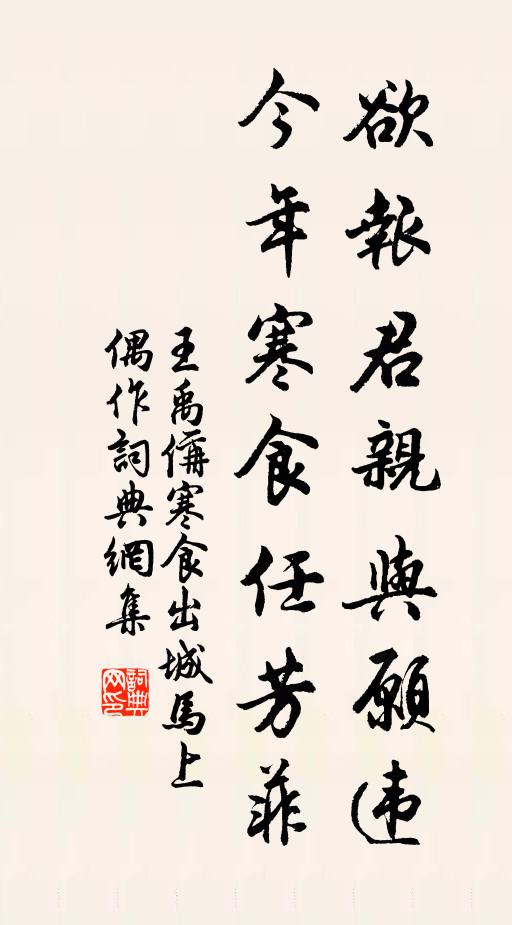 欲報君親與願違
今年寒食任芳菲
王禹偁寒食出城馬上
偶作詞典網集
詞典网印